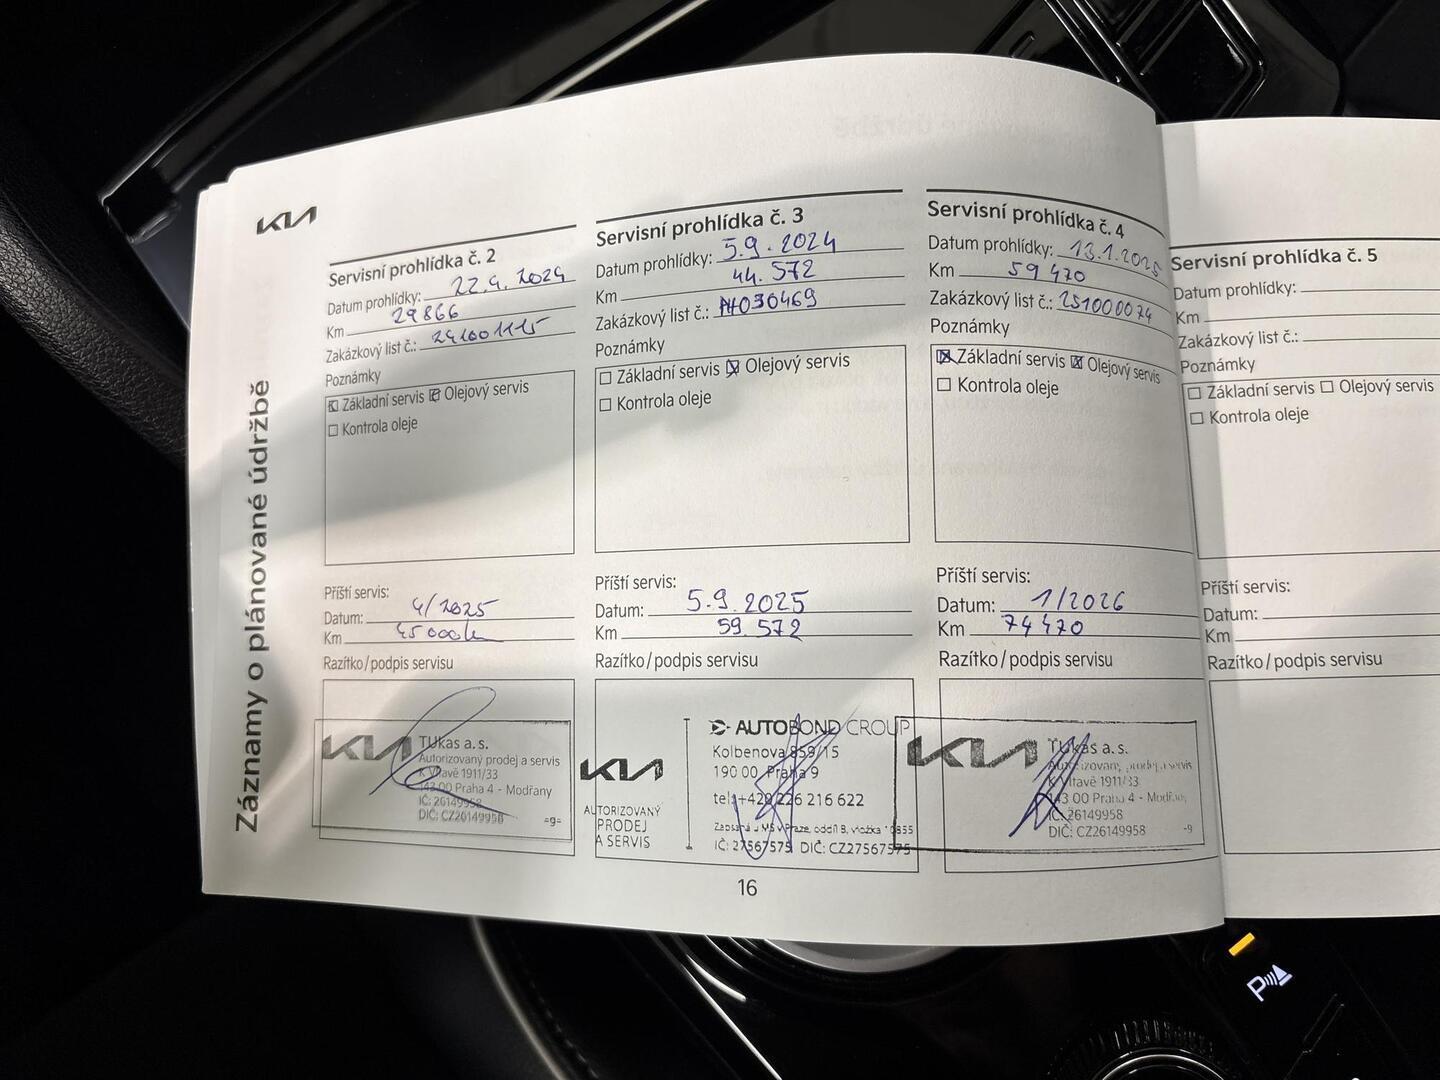 KIA
Záznamy o plánované údržbě
Servisní prohlídka č. 2
Datum prohlídky: 22.4.2024
Km 29866
Zakázkový list č.: 241001115
Poznámky
Základní servis Olejový servis
Kontrola oleje
Příští servis:
Datum: 4/2025
Km 45000km
Razítko/podpis servisu
KIA TUkas a. s.
Autorizovaný prodej a servis
K Vltavě 1911/33
143 00 Praha 4 - Modřany
IČ: 26149958
DIČ: CZ26149958 -9-
Servisní prohlídka č. 3
Datum prohlídky: 5.9.2024
Km 44.572
Zakázkový list č.: 030469
Poznámky
Základní servis Olejový servis
Kontrola oleje
Příští servis:
Datum: 5.9.2025
Km 59.572
Razítko/podpis servisu
AUTOBOND GROUP
Kolbenova 859/15
190 00 Praha 9
tel:+420 226 216 622
Zapsaná u MS v Praze, oddíl B, vložka 10855
IČ: 27567575 DIČ: CZ27567575
KIA
AUTORIZOVANÝ
PRODEJ
A SERVIS
Servisní prohlídka č. 4
Datum prohlídky: 13.1.2025
Km 59470
Zakázkový list č.: 251000074
Poznámky
Základní servis Olejový servis
Kontrola oleje
Příští servis:
Datum: 1/2026
Km 74470
Razítko/podpis servisu
KIA TUkas a. s.
Autorizovaný prodej a servis
K Vltavě 1911/33
143 00 Praha 4 - Modřany
IČ: 26149958
DIČ: CZ26149958 -9
16
Servisní prohlídka č. 5
Datum prohlídky:
Km
Zakázkový list č.:
Poznámky
Základní servis Olejový servis
Kontrola oleje
Příští servis:
Datum:
Km
Razítko/podpis servisu
P